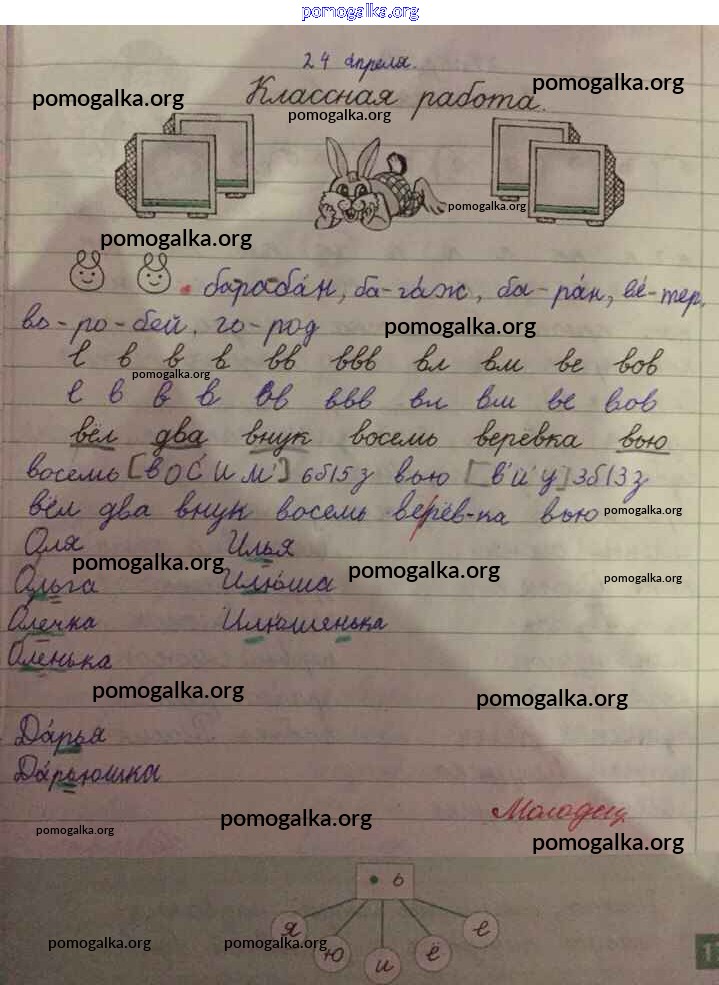 pomogalka.org
24 апреля.
pomogalka.org
Классная работа.
pomogalka.org
pomogalka.org
pomogalka.org
pomogalka.org
барабáн, ба-гáж, ба-рáн, вé-тер,
во-ро-бей, го-род
pomogalka.org
в в в вв ввв вл вм ве вов
pomogalka.org
в в в вв ввв вл вм ве вов
вёл два внук восемь верёвка вью
восемь [вОС'ИМ'] 6б15з вью [в'й'у] 3б13з
вёл два внук восемь верёв-ка вью
pomogalka.org
Оля Илья
pomogalka.org
pomogalka.org
Ольга Илюша
pomogalka.org
Олечка Илюшенька
Оленька
pomogalka.org
pomogalka.org
Дáрья
Дáрьюшка
Молодец
pomogalka.org
pomogalka.org
pomogalka.org
ь
я ю и ё е
pomogalka.org
pomogalka.org
1